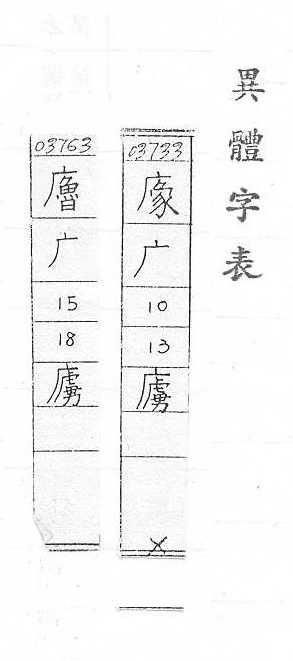 異體字表
03733
广
10
13
03763
㢚
广
15
18